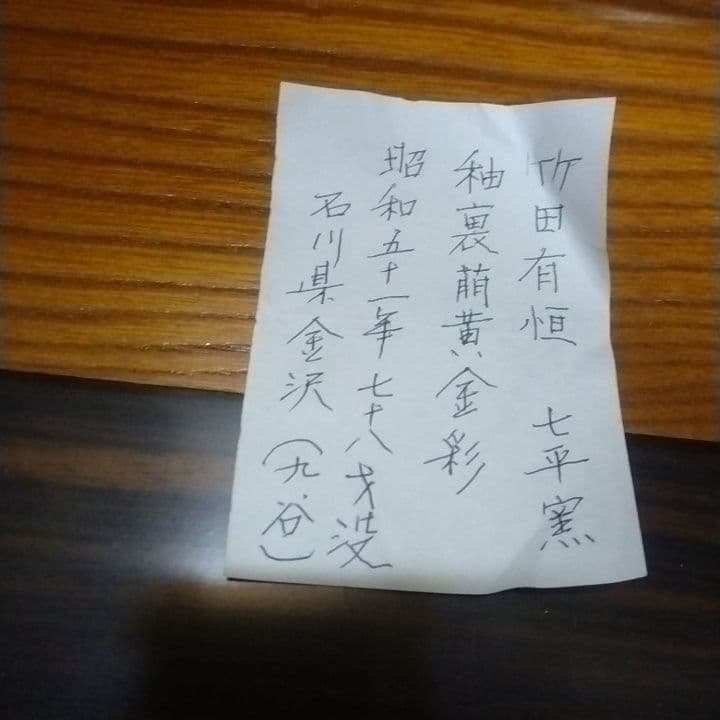 竹田有恒 七平窯
釉裏萠黄金彩
昭和五十一年七十八才没
石川県金沢(九谷)